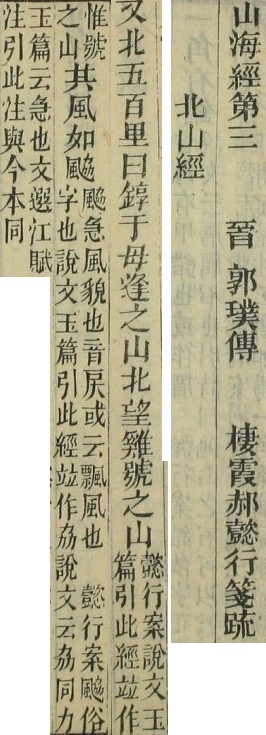 山海經第三　晉　郭璞傳　棲霞郝懿行箋疏
北山經
又北五百里曰錞于毋逢之山北望雞號之山
懿行案說文玉
篇引此經竝作
惟號
之山
其風如䬅
䬅急風貌也音戾或云飄風也　懿行案䬅俗
字也說文玉篇引此經竝作劦說文云劦同力
玉篇云急也文選江賦
注引此注與今本同